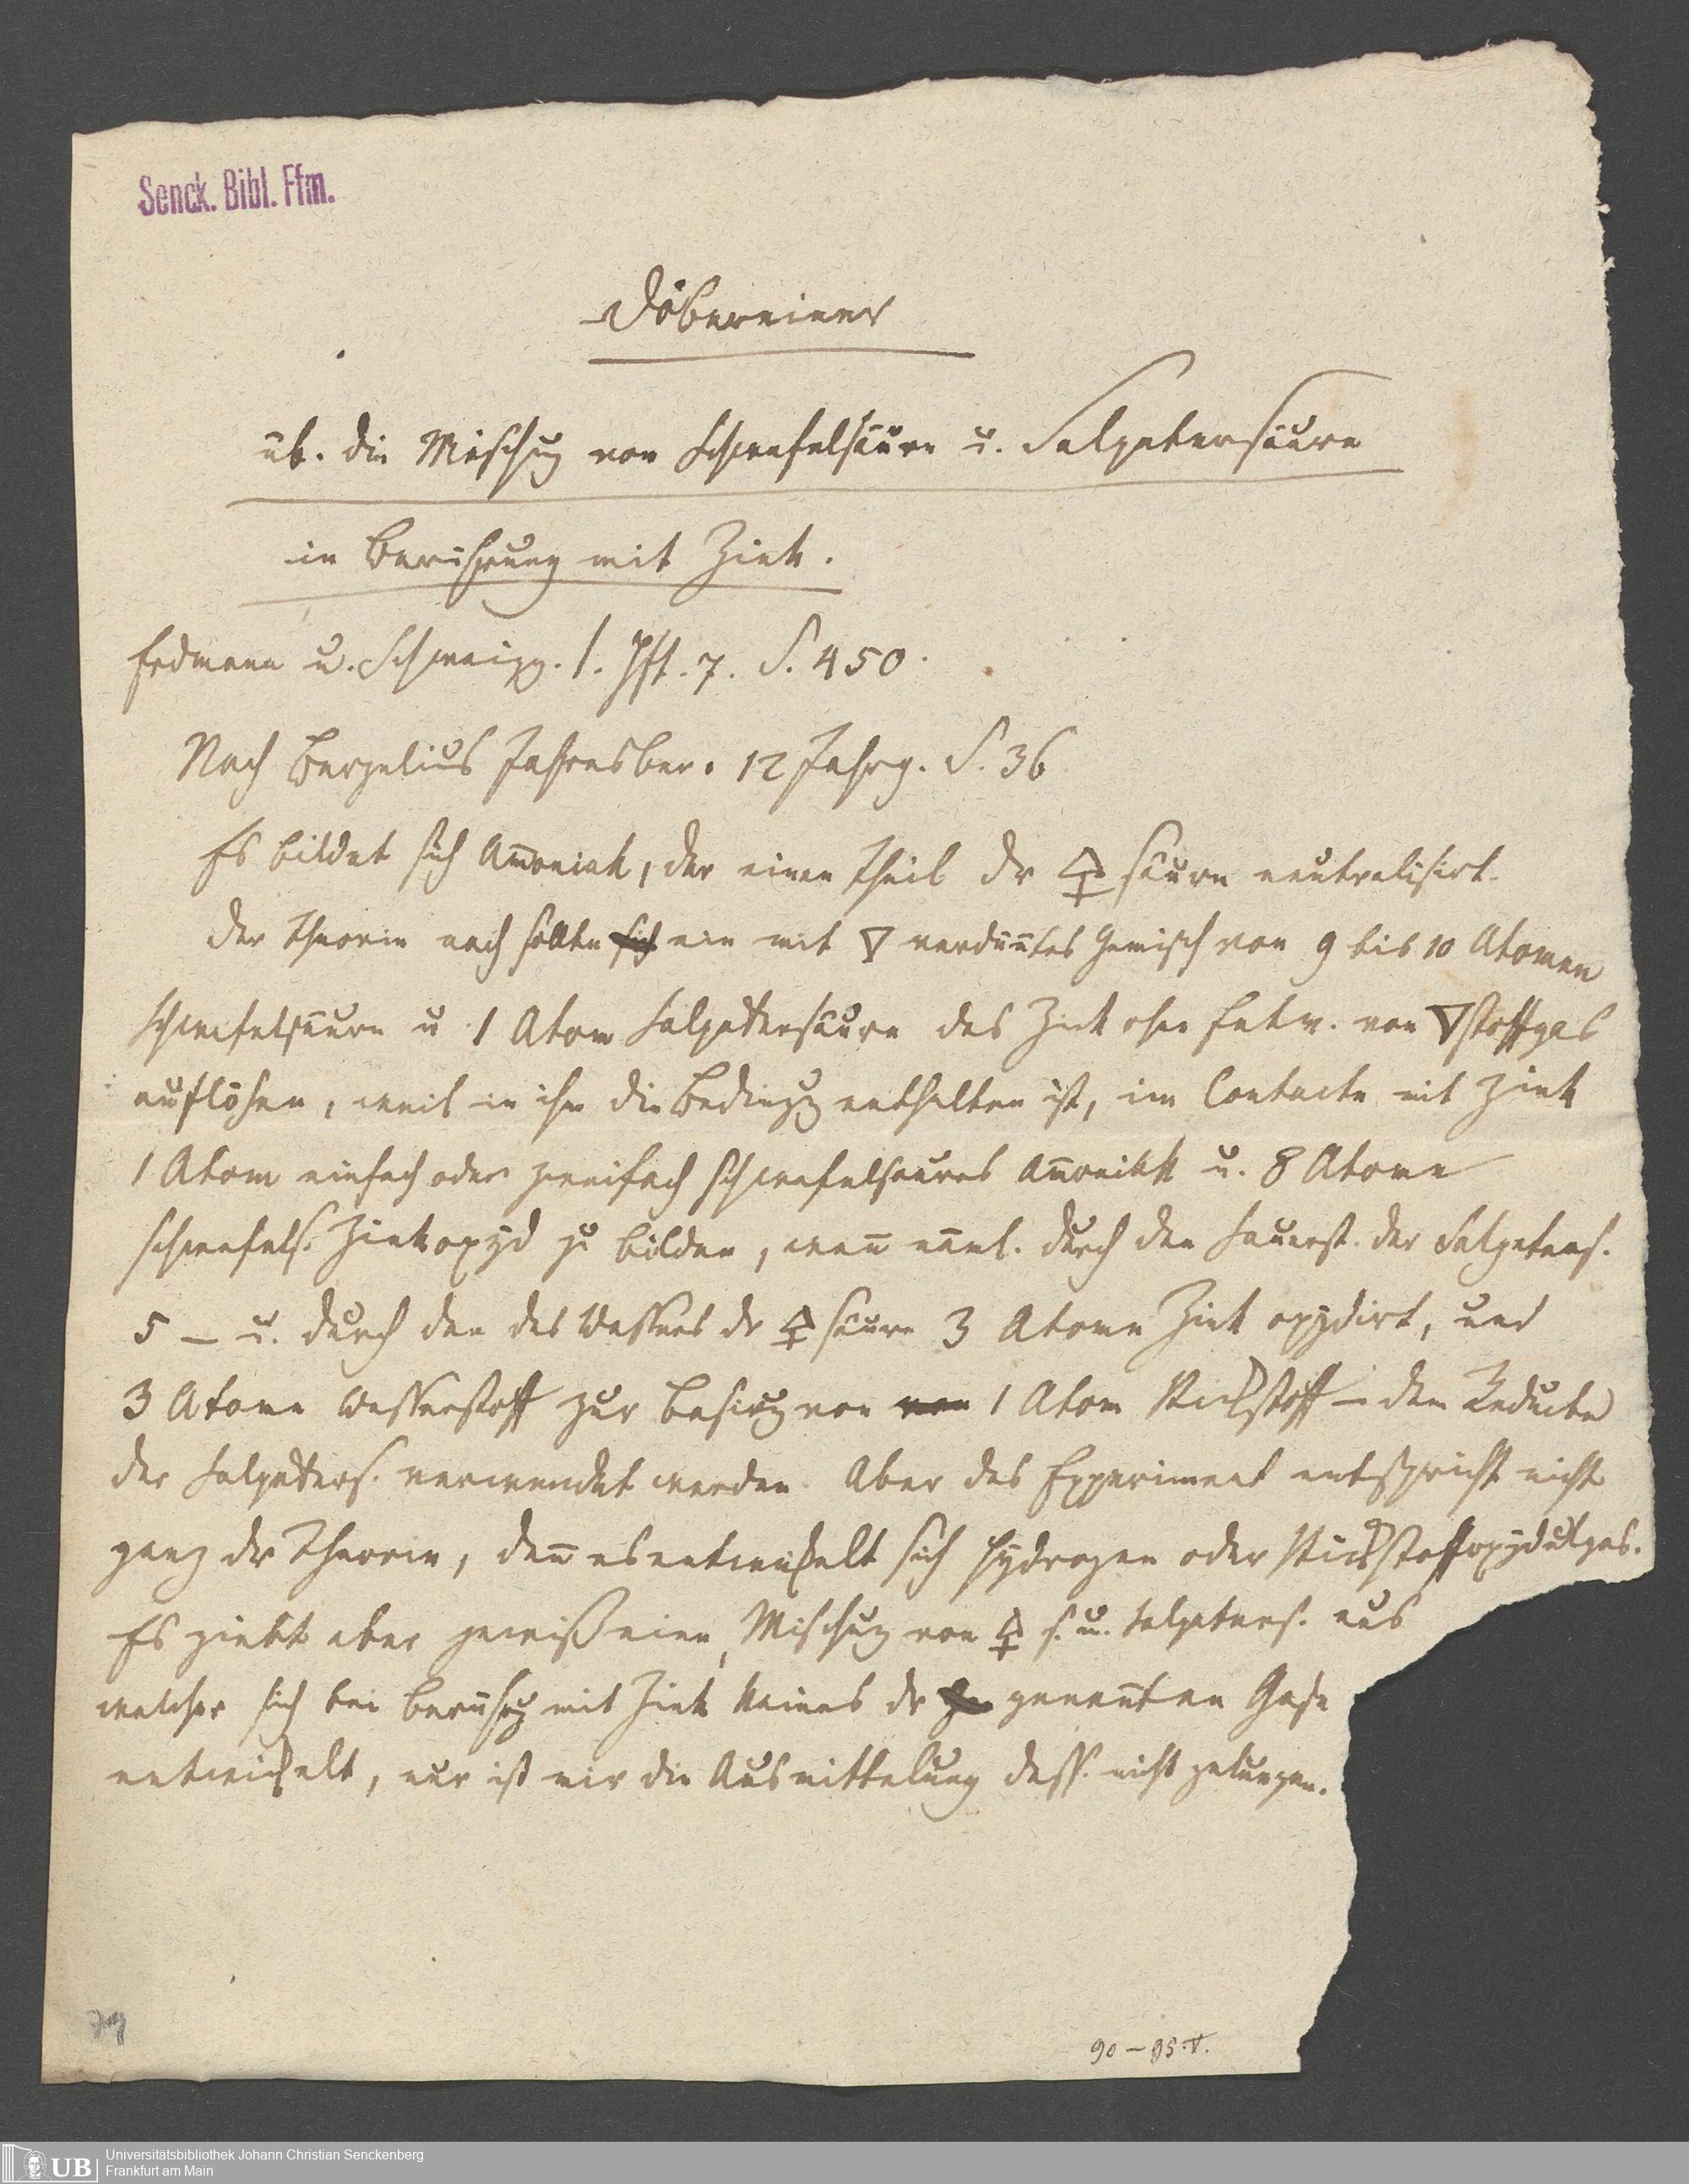 Senck. Bibl. Ffm.
Döbereiner
üb. die Mischug von Schwefelsäure u. Salpetersäure
in Berührung mit Zink.
Erdmann u. Schweigg. J. Hft. 7. S. 450.
Nach Berzelius Jahresber. 12 Jahrg. S. 36
Es bildet sich Am̄oniak, der einen Theil dr 🜍 säure neutralisirt.
Der Theorie nach sollte sich ein mit 🜄 verdün̄tes Gemisch von 9 bis 10 Atomen
Schwefelsäure u 1 Atom Salpetersäure das Zink ohne Entw. von 🜄stoffgas
auflösen, weil in ihm die Bedingg enthalten ist, im Contacte mit Zink
1 Atom einfach oder zweifach schwefelsaures Am̄oniak u. 8 Atome
schwefels. Zinkoxyd zu bilden, wen̄ näml. durch den Sauerst. der Salpeters.
5 — u. durch den des Wassers dr 🜍 säure 3 Atome Zink oxydirt, und
3 Atome Wasserstoff zur Basirug von von 1 Atom Stickstoff – dem Reducte
der Salpeters. verwendet werden. Aber das Experiment entspricht nicht
ganz dr Theorie, den̄ es entwickelt sich Hydrogen oder Stickstoffoxydulgas.
Es giebt aber gewiß eine Mischug von 🜍 s. u. Salpeters. aus
welcher sich bei Berührg mit Zink keines dr genan̄ten Gase
entwickelt, nur ist mir die Ausmittelung dess. nicht gelungen.
79
90–95.V.
UB Universitätsbibliothek Johann Christian Senckenberg
Frankfurt am Main